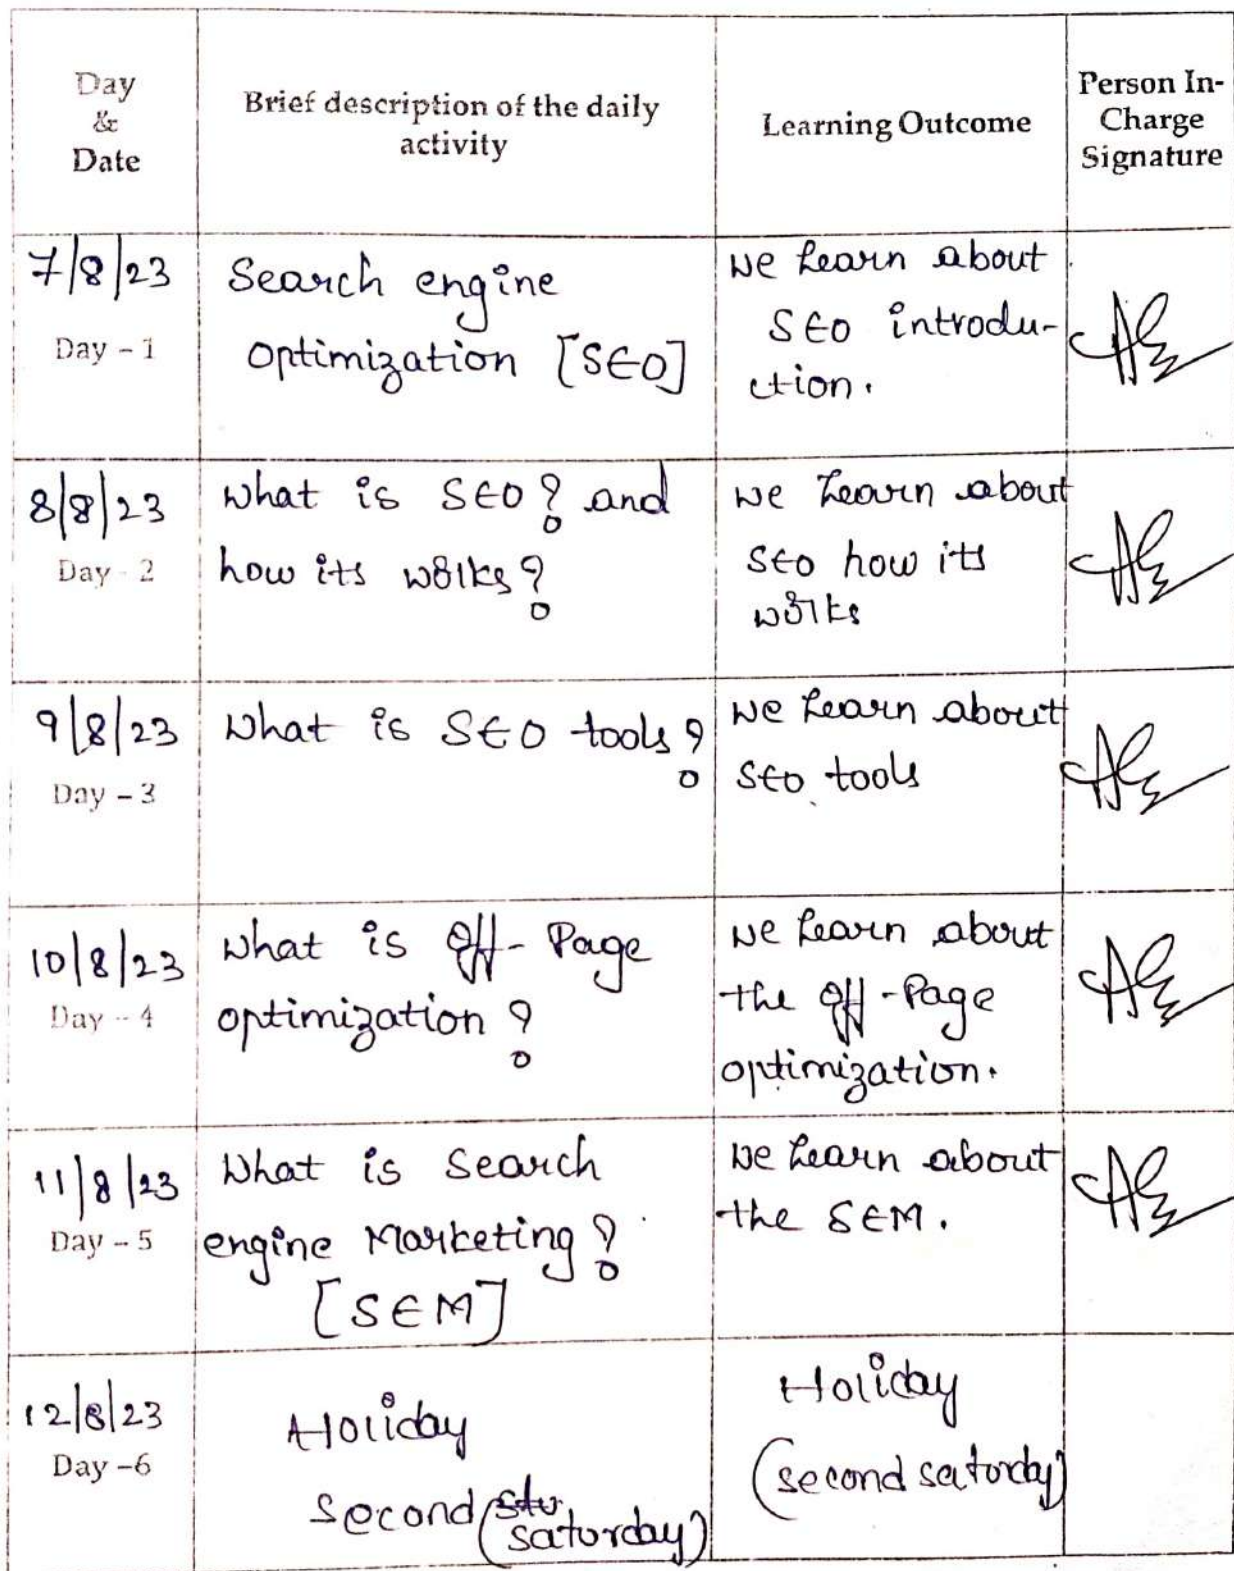 Day
&
Date
Brief description of the daily
activity
Learning Outcome
Person In-
Charge
Signature
7/8/23
Day - 1
Search engine
optimization [SEO]
we learn about
SEO introdu-
ction.
8/8/23
Day - 2
what is SEO? and
how its works?
we learn about
SEO how its
works
9/8/23
Day - 3
what is SEO tools?
we learn about
SEO tools
10/8/23
Day - 4
what is off-Page
optimization?
we learn about
the off-Page
optimization.
11/8/23
Day - 5
what is search
engine Marketing?
[SEM]
we learn about
the SEM.
12/8/23
Day -6
Holiday
second (
saturday)
Holiday
(second satorday)